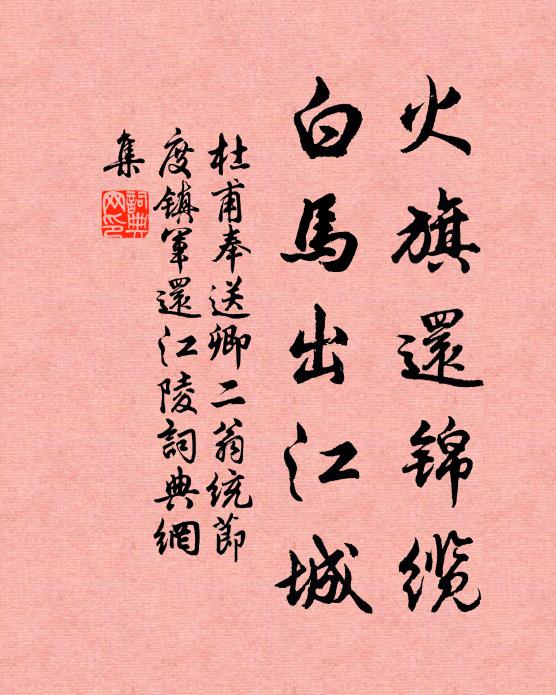 火旗還锦缆
白馬出江城
杜甫奉送卿二翁統節
度鎮軍還江陵詞典網
集
詞典
网印